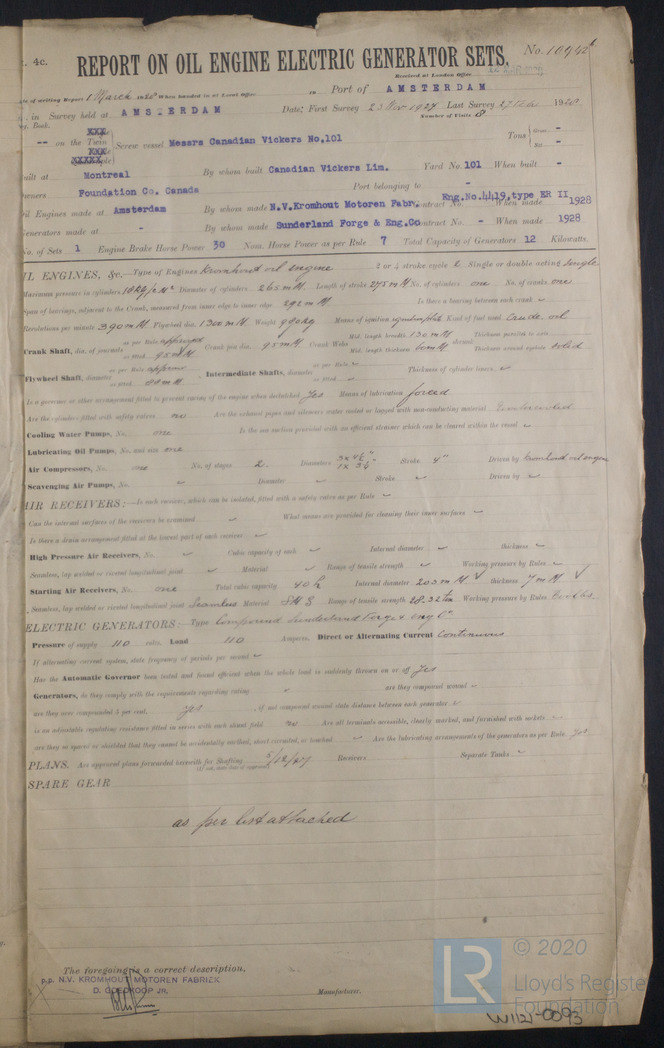 4c. REPORT ON OIL ENGINE ELECTRIC GENERATOR SETS. No. 10942
Received at London Office
of writing Report 1 March 1928 When handed in at Local Office Port of AMSTERDAM
in Survey held at AMSTERDAM Date: First Survey 23 Nov 1927 Last Survey 1928
Number of Visits 8
-- on the Twin Screw vessel Messrs Canadian Vickers No.101 Tons Gross - Net -
Built at Montreal By whom built Canadian Vickers Lim. Yard No. 101 When built -
Owners Foundation Co. Canada Port belonging to -
Oil Engines made at Amsterdam By whom made N.V.Kromhout Motoren Fabr. Contract No. Eng.No.4419,type ER II When made 1928
Generators made at - By whom made Sunderland Forge & Eng.Co Contract No. - When made 1928
No. of Sets 1 Engine Brake Horse Power 30 Nom. Horse Power as per Rule 7 Total Capacity of Generators 12 Kilowatts.
OIL ENGINES, &c.—Type of Engines Kromhout oil engine 2 or 4 stroke cycle 2 Single or double acting Single
Maximum pressure in cylinders Diameter of cylinders 265 m/M Length of stroke 275 m/M No. of cylinders one No. of cranks one
Span of bearings, adjacent to the Crank, measured from inner edge to inner edge 292 m/M Is there a bearing between each crank
Revolutions per minute 390 Flywheel dia. 1300 m/M Weight 990 kg Means of ignition Kind of fuel used Crude oil
Crank Shaft, dia. of journals as per Rule approved as fitted 95 m/M Crank pin dia. 95 m/M Crank Webs Mid. length breadth 130 m/M Mid. length thickness 60 m/M shrunk Thickness parallel to axis Thickness around eyehole solid
Flywheel Shaft, diameter as per Rule approved as fitted Intermediate Shafts, diameter as per Rule as fitted Thickness of cylinder liners
Is a governor or other arrangement fitted to prevent racing of the engine when declutched Yes Means of lubrication forced
Are the cylinders fitted with safety valves Are the exhaust pipes and silencers water cooled or lagged with non-conducting material
Cooling Water Pumps, No. one Is the sea suction provided with an efficient strainer which can be cleared within the vessel
Lubricating Oil Pumps, No. and size one
Air Compressors, No. one No. of stages 2. Diameters Stroke 4" Driven by Kromhout oil engine
Scavenging Air Pumps, No. Diameter Stroke Driven by
AIR RECEIVERS:—Is each receiver, which can be isolated, fitted with a safety valve as per Rule
Can the internal surfaces of the receivers be examined What means are provided for cleaning their inner surfaces
Is there a drain arrangement fitted at the lowest part of each receiver
High Pressure Air Receivers, No. Cubic capacity of each Internal diameter thickness
Seamless, lap welded or riveted longitudinal joint Material Range of tensile strength Working pressure by Rules
Starting Air Receivers, No. one Total cubic capacity 40 Internal diameter 203 m/M thickness 7 m/M
Seamless, lap welded or riveted longitudinal joint Seamless Material Range of tensile strength 28.32 Working pressure by Rules
ELECTRIC GENERATORS:—Type Compound Sunderland Forge & Eng Co
Pressure of supply 110 volts. Load 110 Amperes. Direct or Alternating Current Continuous
If alternating current system, state frequency of periods per second
Has the Automatic Governor been tested and found efficient when the whole load is suddenly thrown on or off Yes
Generators, do they comply with the requirements regarding rating are they compound wound
are they over compounded 5 per cent. Yes if not compound wound state distance between each generator
is an adjustable regulating resistance fitted in series with each shunt field Are all terminals accessible, clearly marked, and furnished with sockets
are they so spaced or shielded that they cannot be accidentally earthed, short circuited, or touched Are the lubricating arrangements of the generators as per Rule Yes
PLANS. Are approved plans forwarded herewith for Shafting 5/12/27 Receivers Separate Tanks
(If not, state date of approval)
SPARE GEAR
as per list attached
The foregoing is a correct description,
p.p. N.V. KROMHOUT MOTOREN FABRIEK
D. GOEDKOOP JR.
Manufacturer.
LR © 2020
Lloyd's Register
Foundation
W1121-0093